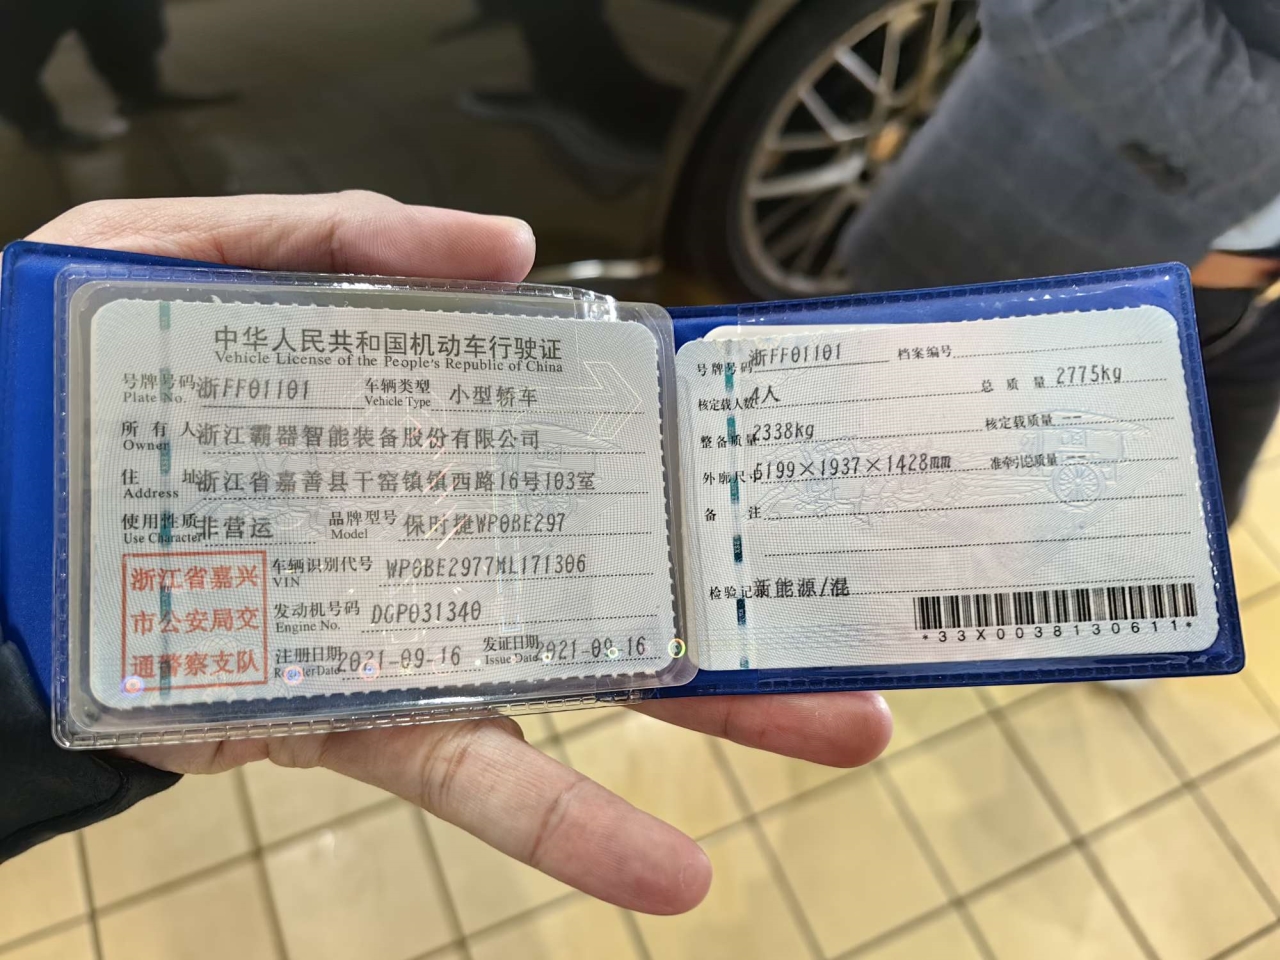 中华人民共和国机动车行驶证
Vehicle License of the People's Republic of China
号牌号码 浙FF01101 车辆类型 小型轿车
Plate No. Vehicle Type
所有人 浙江霸器智能装备股份有限公司
Owner
住址 浙江省嘉善县干窑镇镇西路16号103室
Address
使用性质 非营运 品牌型号 保时捷WP0BE297
Use Character Model
浙江省嘉兴
市公安局交
通警察支队
车辆识别代号 WP0BE2977ML171306
VIN
发动机号码 DGP031340
Engine No.
注册日期 2021-09-16 发证日期 2021-09-16
Register Date Issue Date
号牌号码 浙FF01101 档案编号
核定载人数 4人 总质量 2775kg
整备质量 2338kg 核定载质量 --
外廓尺寸 5199×1937×1428mm 准牵引总质量 --
备注
检验记录 新能源/混
*33X0038130611*